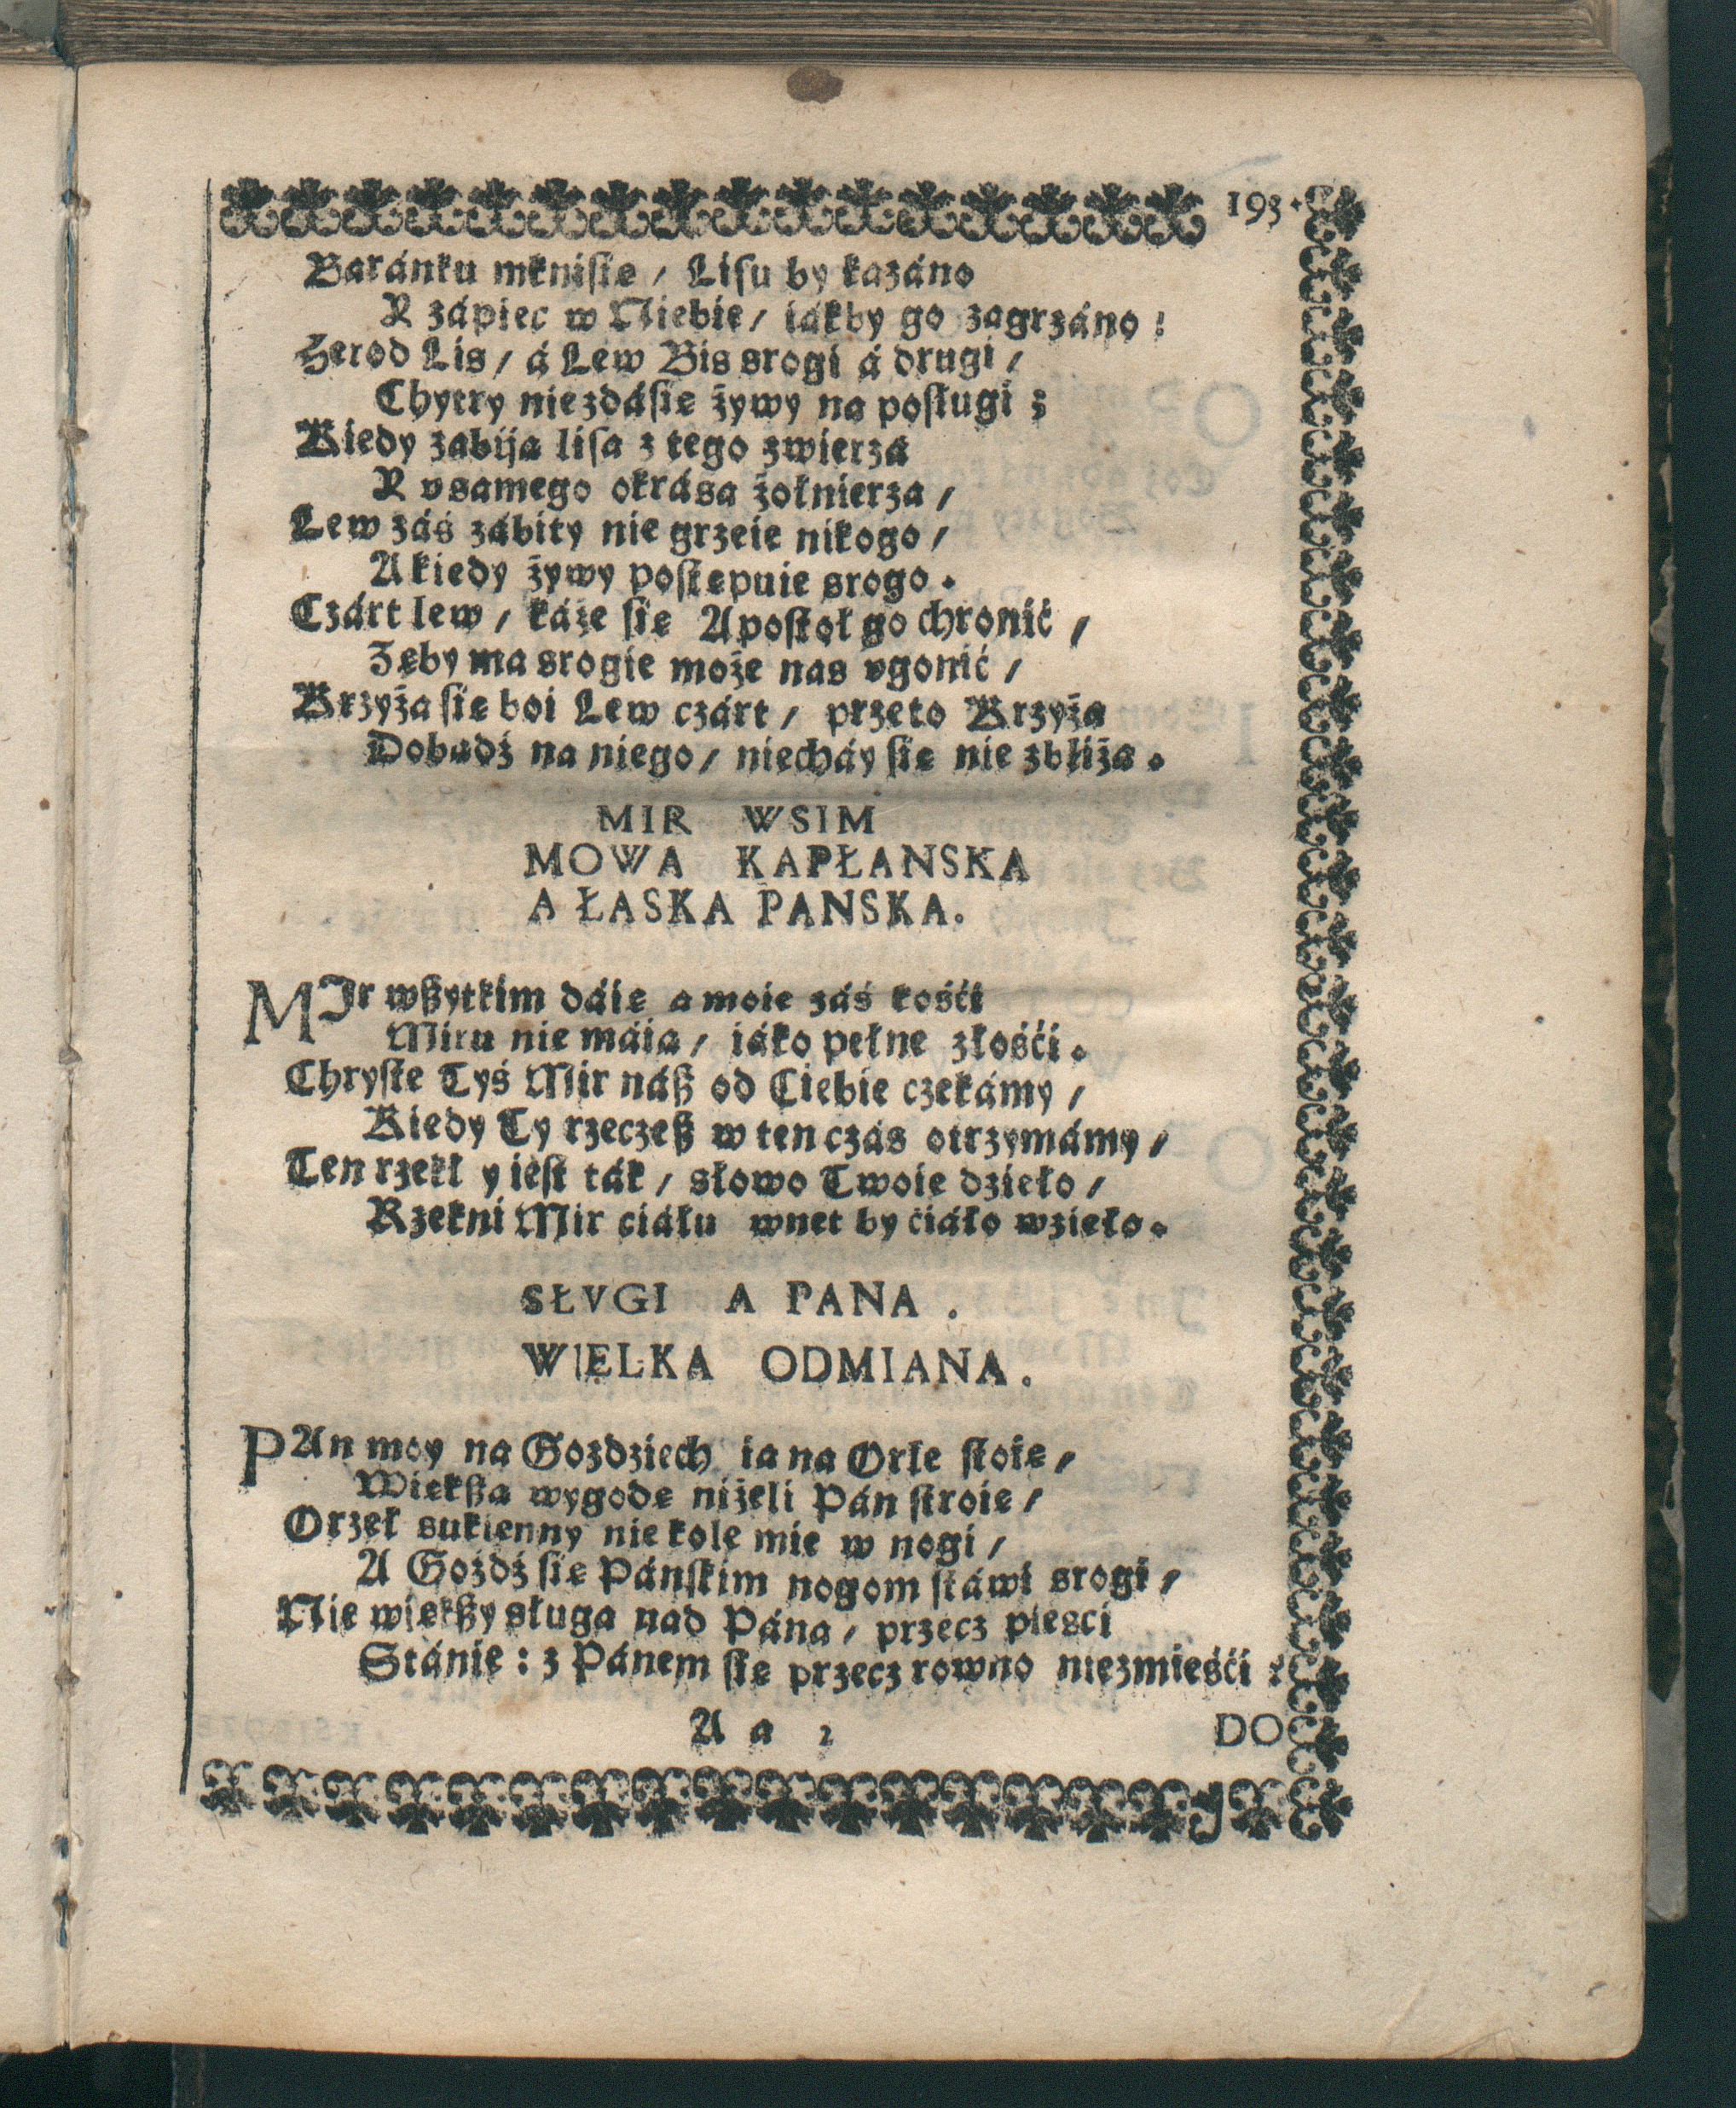 193.
Baránku mkniſie / Liſu by kazáno
R zápiec w Niebie / iákby go zagrzáno:
Herod Lis / á Lew Bis srogi á drugi /
Chytry niezdáſie żywy na poſługi ;
Kiedy zabija liſa z tego zwierzá
R vsamego okrása żołnierza /
Lew záś zábity nie grzeie nikogo /
A kiedy żywy poſtępuie srogo.
Czárt lew / káże ſie Apoſtoł go chronić /
Zęby ma srogie może nas vgonić /
Krzyża ſie boi Lew czárt / przeto Krzyża
Dobądź na niego / niecháy ſie nie zbliża.
MIR WSIM
MOWA KAPŁANSKA
A ŁASKA PANSKA.
MIr wßytkim dáię a moie záś kośći
Miru nie máią / iáko pełne złośći.
Chryſte Tyś Mir náß od Ciebie czekámy /
Kiedy Ty rzeczeß w ten czás otrzymámy /
Ten rzekł y ieſt ták / słowo Twoie dzieło /
Rzekni Mir ciáłu wnet by ciáło wzięło.
SŁVGI A PANA.
WIELKA ODMIANA.
PAn moy na Gozdziech ia na Orle ſtoię /
Więkßą wygodę niżeli Pán ſtroię /
Orzeł sukienny nie kole mię w nogi /
A Goźdź ſie Páńſkim nogom ſtáwi srogi /
Nie więkßy sługa nad Páná / przecz piesci
Stánie : z Pánem ſie przecz rowno niezmieśći ?
A a 2
DO